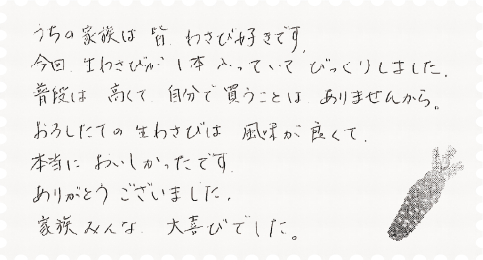 うちの家族は 皆 わさび好きです。
今回、生わさびが 1本 入っていて びっくりしました。
普段は 高くて 自分で 買うことは ありませんから。
おろしたての 生わさびは 風味が 良くて、
本当に おいしかったです。
ありがとう ございました。
家族 みんな 大喜びでした。